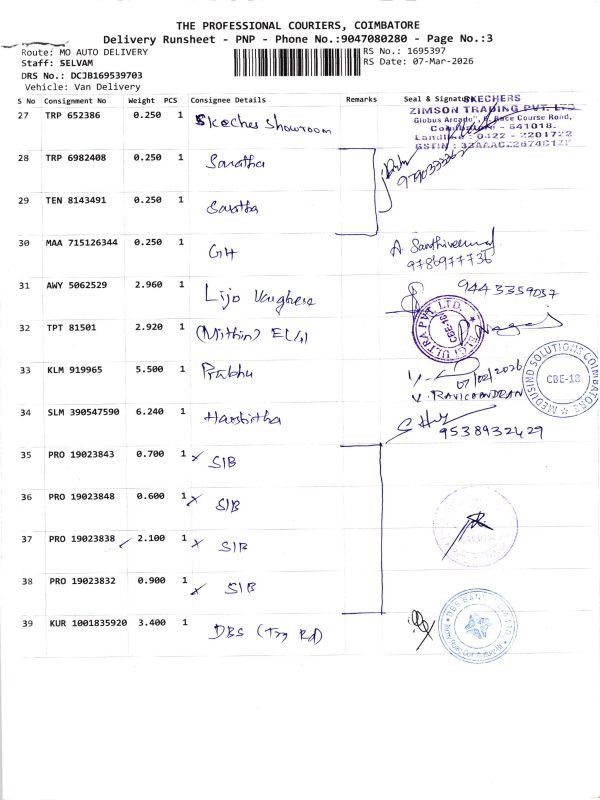 THE PROFESSIONAL COURIERS, COIMBATORE
Delivery Runsheet - PNP - Phone No.:9047080280 - Page No.:3
Route: MO AUTO DELIVERY RS No.: 1695397
Staff: SELVAM RS Date: 07-Mar-2026
DRS No.: DCJB169539703
Vehicle: Van Delivery
S No Consignment No Weight PCS Consignee Details Remarks Seal & Signature
SKECHERS
ZIMSON TRADING PVT. LTD
Globus Arcade", Race Course Road,
Coimbatore - 641018.
Landline: 0422 - 2201722
27 TRP 652386 0.250 1 Skeches Showroom
28 TRP 6982408 0.250 1 Saratha
29 TEN 8143491 0.250 1 Saratha
30 MAA 715126344 0.250 1 GH
9786977736
31 AWY 5062529 2.960 1 Lijo Varghese 9443359057
32 TPT 81501 2.920 1 (Mithin)
ULTRA PVT LTD
CBE-18
33 KLM 919965 5.500 1 Prabhu
V. RAVICHANDRAN
MEDUSIND SOLUTIONS COIMBATORE
CBE-18
34 SLM 390547590 6.240 1 Harshitha 9538932429
35 PRO 19023843 0.700 1 x SIB
36 PRO 19023848 0.600 1 x SIB
37 PRO 19023838 ✓ 2.100 1 x SIB
38 PRO 19023832 0.900 1 x SIB
39 KUR 1001835920 3.400 1 DBS (Try Rd)